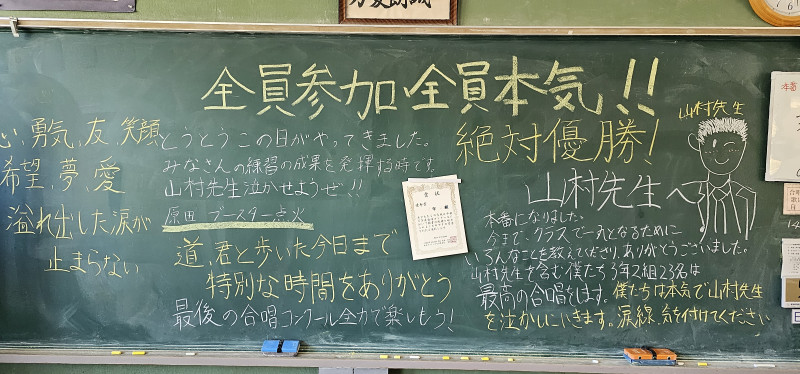 全員参加・全員本気!!
絶対優勝!
心、勇気、友、笑顔
希望、夢、愛
溢れ出した涙が
止まらない
とうとうこの日がやってきました。
みなさんの練習の成果を発揮する時です。
山村先生泣かせようぜ!!
原田 ブースター点火
道、君と歩いた今日まで
特別な時間をありがとう
最後の合唱コンクール全力で楽しもう!
賞状
山村先生
山村先生へ
本番になりました
今まで、クラスで一丸となるために
いろんなことを教えてくださり、ありがとうございました。
山村先生を含む僕たち3年2組23名は
最高の合唱をします。僕たちは本気で山村先生
を泣かしにいきます。涙線、気を付けてください
本番